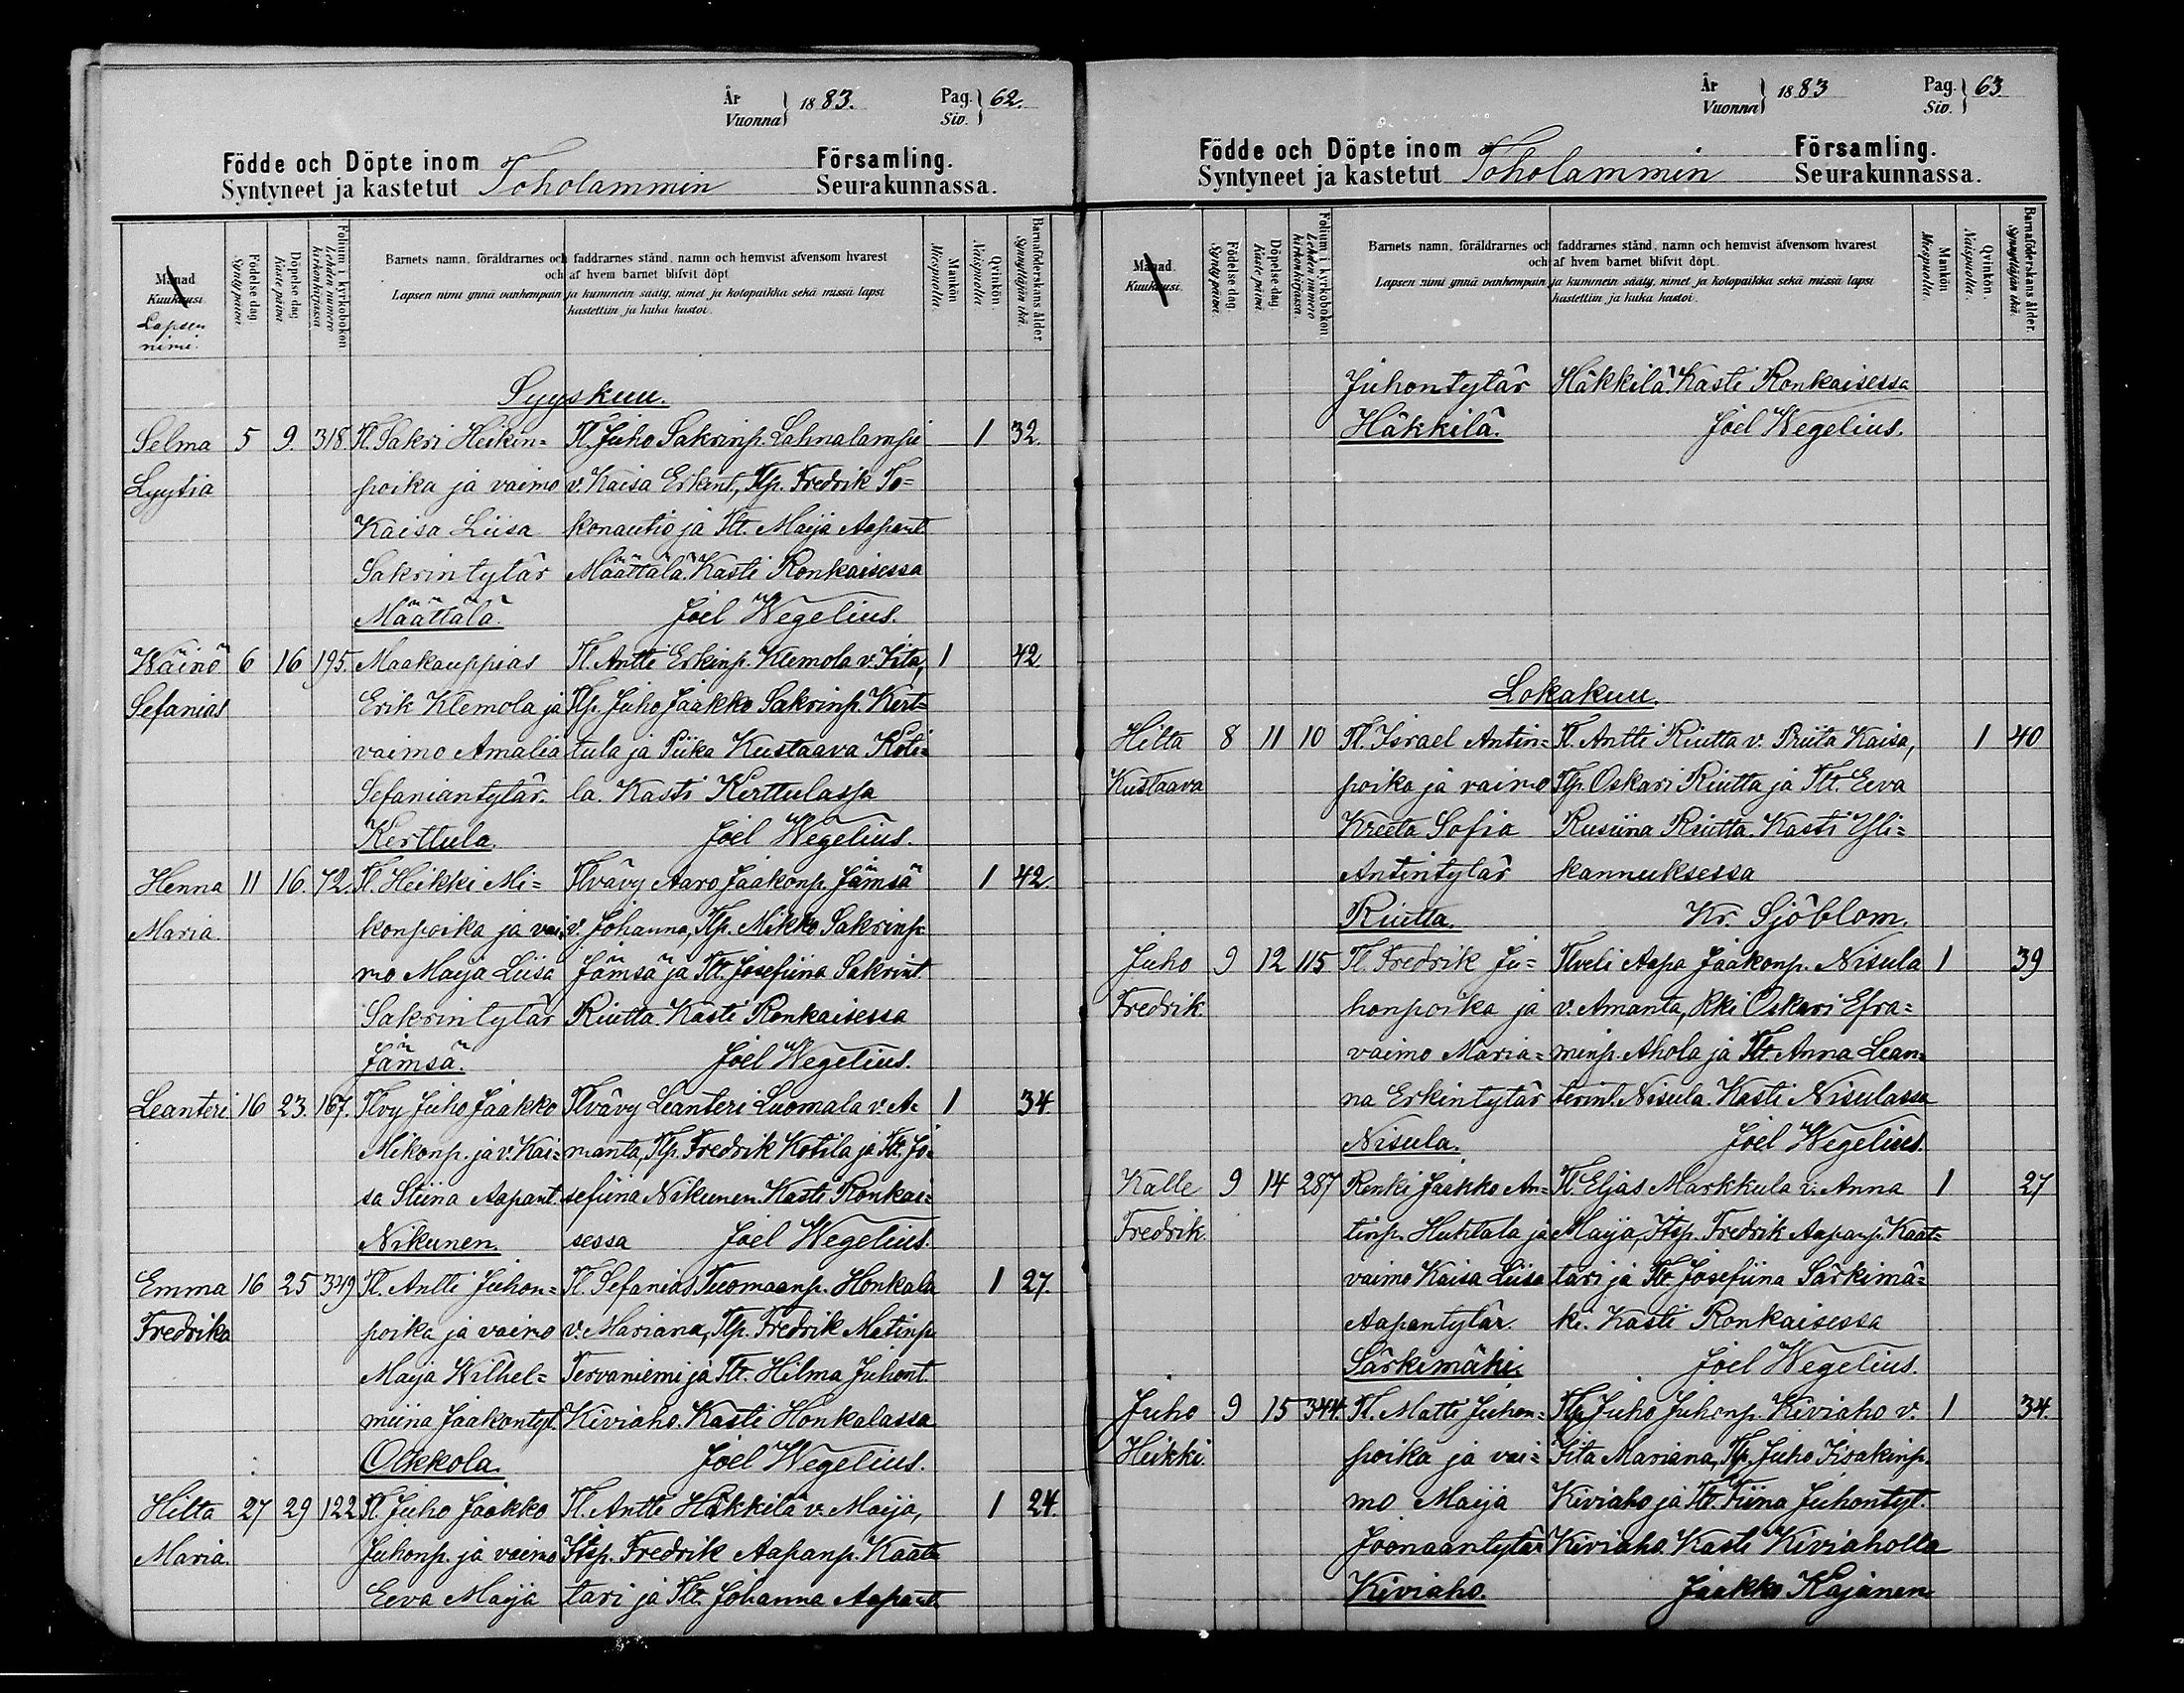 År
Vuonna } 1883. Pag.
Siv. } 62.
Födde och Döpte inom Församling.
Syntyneet ja kastetut Toholammin Seurakunnassa.
Månad
Kuukausi
Lapsen
nimi.
Födelse dag
Syntypäivä.
Döpelse dag
Kaste päivä
Folium i kyrkobokon
Lehden numero
kirkonkirjassa
Barnets namn, föräldrarnes och faddrarnes stånd, namn och hemvist äfvensom hvarest
och af hvem barnet blifvit döpt
Lapsen nimi ynnä vanhempain ja kummein sääty, nimet ja kotopaikka sekä missä lapsi
kastettiin ja kuka kastoi.
Mankön
Miespuolia.
Qvinkön.
Naispuolia.
Barnaföderskans ålder
Synnyttäjän ikä.
Syyskuu.
Selma 5 9. 318. Tl. Sakri Heikin= Tl. Juho Sakrinp. Lahnalampi 1 32.
Lyytia poika ja vaimo v. Kaisa Erkint., Tlp. Fredrik To=
Kaisa Liisa konautio ja Tlt. Maija Aapant.
Sakrintytär Määttälä. Kasti Ronkaisessa
Määttälä. Joel Wegelius.
Wäinö 6 16 195. Maakauppias Tl. Antti Erkinp. Klemola v. Iita, 1 42
Sefanias Erik Klemola ja Tlp. Juho Jaakko Sakrinp. Kert=
vaimo Amalia tula ja Piika Kustaava Koti=
Sefaniantytär. la. Kasti Kerttulassa
Kerttula. Joel Wegelius.
Henna 11 16. 72. Tl. Heikki Mi= Tlvävy Aaro Jaakonp. Jämsä 1 42.
Maria. konpoika ja vai= v. Johanna, Tlp. Mikko Sakrinp.
mo Maija Liisa Jämsä ja Tlt. Josefiina Sakrint.
Sakrintytär Riutta. Kasti Ronkaisessa
Jämsä. Joel Wegelius.
Leanteri 16 23. 167. Tlvy Juho Jaakko Tlvävy Leanteri Luomala v. A= 1 34
Mikonp. ja v. Kai= manta, Tlp. Fredrik Kotila ja Tlt. Jo=
sa Stiina Aapant. sefiina Nikunen. Kasti Ronkai=
Nikunen. sessa Joel Wegelius.
Emma 16 25 349 Tl. Antti Juhon= Tl. Sefanias Tuomaanp. Honkala 1 27.
Fredrika poika ja vaimo v. Mariana, Tlp. Fredrik Matinp.
Maija Wilhel= Tervaniemi ja Tlt. Hilma Juhont.
miina Jaakontyt. Kiviaho. Kasti Honkalassa
Olkkola. Joel Wegelius.
Hilta 27 29 122 Tl. Juho Jaakko Tl. Antti Häkkilä v. Maija, 1 24.
Maria. Juhonp. ja vaimo Itsp. Fredrik Aapanp. Kaat=
Eeva Maija tari ja Tlt. Johanna Aapant.
År
Vuonna } 1883 Pag.
Siv. } 63
Födde och Döpte inom Församling.
Syntyneet ja kastetut Toholammin Seurakunnassa.
Månad.
Kuukausi.
Födelse dag.
Syntypäivä.
Döpelse dag.
Kaste päivä
Folium i kyrkobokon
Lehden numero
kirkonkirjassa
Barnets namn, föräldrarnes och faddrarnes stånd, namn och hemvist äfvensom hvarest
och af hvem barnet blifvit döpt.
Lapsen nimi ynnä vanhempain ja kummein sääty, nimet ja kotopaikka sekä missä lapsi
kastettiin ja kuka kastoi.
Mankön
Miespuolia.
Qvinkön.
Naispuolia.
Barnaföderskans ålder.
Synnyttäjän ikä.
Juhontytär Häkkilä. Kasti Ronkaisessa
Häkkilä. Joel Wegelius.
Lokakuu.
Hilta 8 11 10 Tl. Israel Antin= Tl. Antti Riutta v. Priita Kaisa, 1 40
Kustaava poika ja vaimo Tlp. Oskari Riutta ja Tlt. Eeva
Kreeta Sofia Rusiina Riutta. Kasti Yli=
Antintytär kannuksessa
Riutta. Kr. Sjöblom.
Juho 9 12 115 Tl. Fredrik Ju= Tlveli Aapa Jaakonp. Nisula 1 39
Fredrik. honpoika ja v. Amanta, Rki Oskari Efra=
vaimo Maria= minp. Ahola ja Tlt. Anna Lean=
na Erkintytär terint. Nisula. Kasti Nisulassa
Nisula. Joel Wegelius.
Kalle 9 14 287 Renki Jaakko An= Tl. Eljas Markkula v. Anna 1 27
Fredrik. tinp. Huhtala ja Maija, Itsp. Fredrik Aapanp. Kaat=
vaimo Kaisa Liisa tari ja Tlt. Josefiina Särkimä=
Aapantytär. ki. Kasti Ronkaisessa
Särkimäki. Joel Wegelius.
Juho 9 15 344. Tl. Matti Juhon= Tlp. Juho Juhonp. Kiviaho v. 1 34.
Heikki. poika ja vai= Iita Mariana, Tlp. Juho Iisakinp.
mo Maija Kiviaho ja Tlt. Fiina Juhontyt.
Joonaantytär Kiviaho. Kasti Kiviaholla
Kiviaho. Jaakko Kajanen.